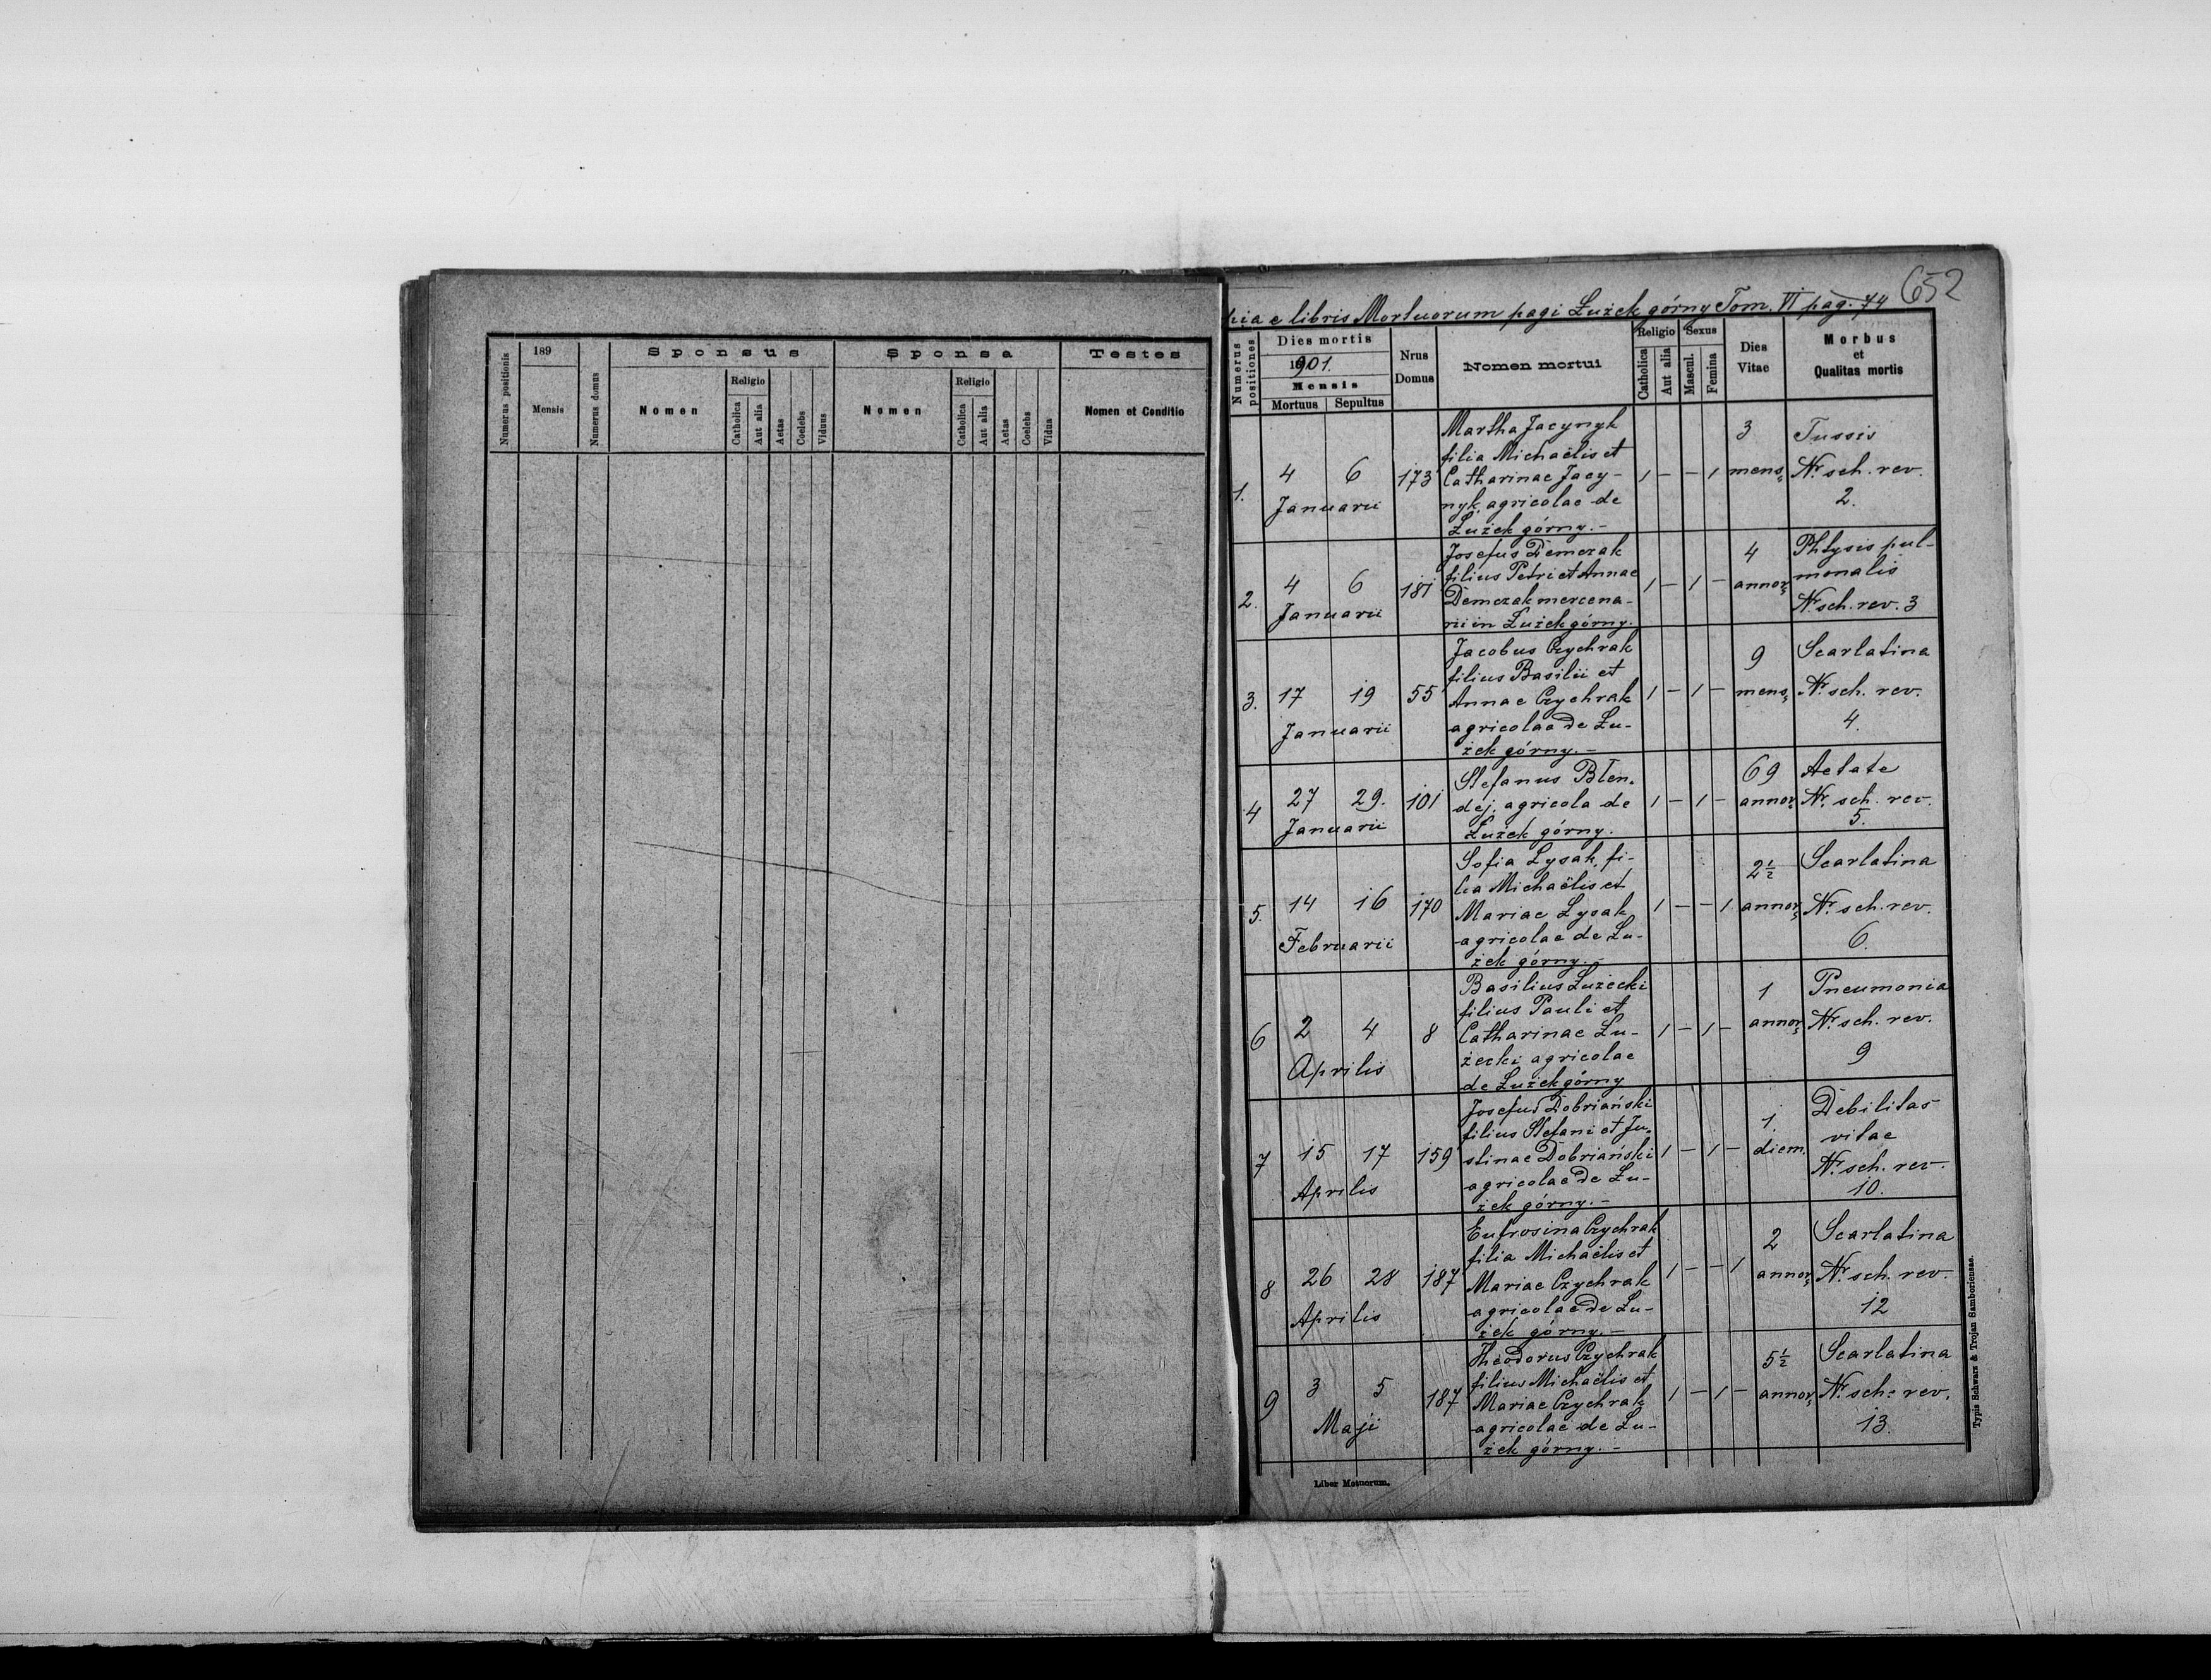 189
Numerus positionis
Mensis
Numerus domus
Sponsus
Nomen
Religio
Catholica
Aut alia
Aetas
Coelebs
Viduus
Sponsa
Nomen
Religio
Catholica
Aut alia
Aetas
Coelebs
Vidua
Testes
Nomen et Conditio
652
e libris Mortuorum pagi Łużek górny Tom. VI pag. 74
Numerus positiones
Dies mortis
1901.
Mensis
Mortuus
Sepultus
Nrus
Domus
Nomen mortui
Religio
Catholica
Aut alia
Sexus
Mascul.
Femina
Dies
Vitae
Morbus
et
Qualitas mortis
1.
4 6
Januarii
173
Martha Jacynyk
filia Michaëlis et
Catharinae Jacy-
nyk, agricolae de
Łużek górny.-
1 - - 1
3
mens.
Tussis
Nr. sch. rev.
2.
2.
4 6
Januarii
181
Josefus Demczak
filius Petri et Annae
Demczak mercena-
rii in Łużek górny.
1 - 1 -
4
annor.
Phtysis pul-
monalis
Nr. sch. rev. 3
3.
17 19
Januarii
55
Jacobus Czychrak
filius Basilii et
Annae Czychrak
agricolae de Łu-
żek górny.-
1 - 1 -
9
mens.
Scarlatina
Nr. sch. rev.
4.
4
27 29.
Januarii
101
Stefanus Błen-
dej, agricola de
Łużek górny.
1 - 1 -
69
annor.
Aetate
Nr. sch. rev.
5.
5.
14 16
Februarii
170
Sofia Łysak, fi-
lia Michaëlis et
Mariae Łysak
agricolae de Łu-
żek górny.-
1 - - 1
2½
annor.
Scarlatina
Nr. sch. rev.
6.
6
2 4
Aprilis
8
Basilius Łużecki
filius Pauli et
Catharinae Łu-
żecki agricolae
de Łużek górny
1 - 1 -
1
annor.
Pneumonia
Nr. sch. rev.
9
7
15 17
Aprilis
159
Josefus Dobriański
filius Stefani et Ju-
stinae Dobriański
agricolae de Łu-
żek górny.-
1 - 1 -
1.
diem.
Debilitas
vitae
Nr. sch. rev.
10.
8
26 28
Aprilis
187
Eufrosina Czychrak
filia Michaëlis et
Mariae Czychrak
agricolae de Łu-
żek górny.-
1 - - 1
2
annor.
Scarlatina
Nr. sch. rev.
12
9
3 5
Maji
187
Theodorus Czychrak
filius Michaëlis et
Mariae Czychrak
agricolae de Łu-
żek górny.-
1 - 1 -
5½
annor.
Scarlatina
Nr. sch. rev.
13.
Liber Motuorum.
Typis Schwarz & Trojan Samboriensae.